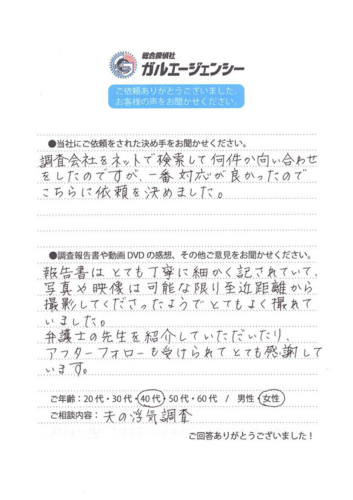 総合探偵社
ガルエージェンシー
ご依頼ありがとうございました。
お客様の声をお聞かせください。
●当社にご依頼をされた決め手をお聞かせください。
調査会社をネットで検索して何件か向い合わせ
をしたのですが、一番対応が良かったので
こちらに依頼を決めました。
●調査報告書や動画DVDの感想、その他ご意見をお聞かせください。
報告書はとても丁寧に細かく記されていて、
写真や映像は可能な限り至近距離から
撮影してくださったようでとてもよく撮れて
いました。
弁護士の先生を紹介していただいたり、
アフターフォローも受けられてとても感謝して
います。
ご年齢：20代・30代・40代・50代・60代 / 男性・女性
ご相談内容：夫の浮気調査
ご回答ありがとうございました！